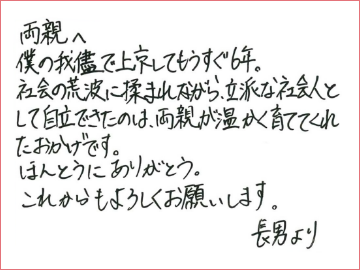 両親へ
僕の我儘で上京してもうすぐ6年。
社会の荒波に揉まれながら、立派な社会人と
して自立できたのは、両親が温かく育ててくれ
たおかげです。
ほんとうにありがとう。
これからもよろしくお願いします。
長男より